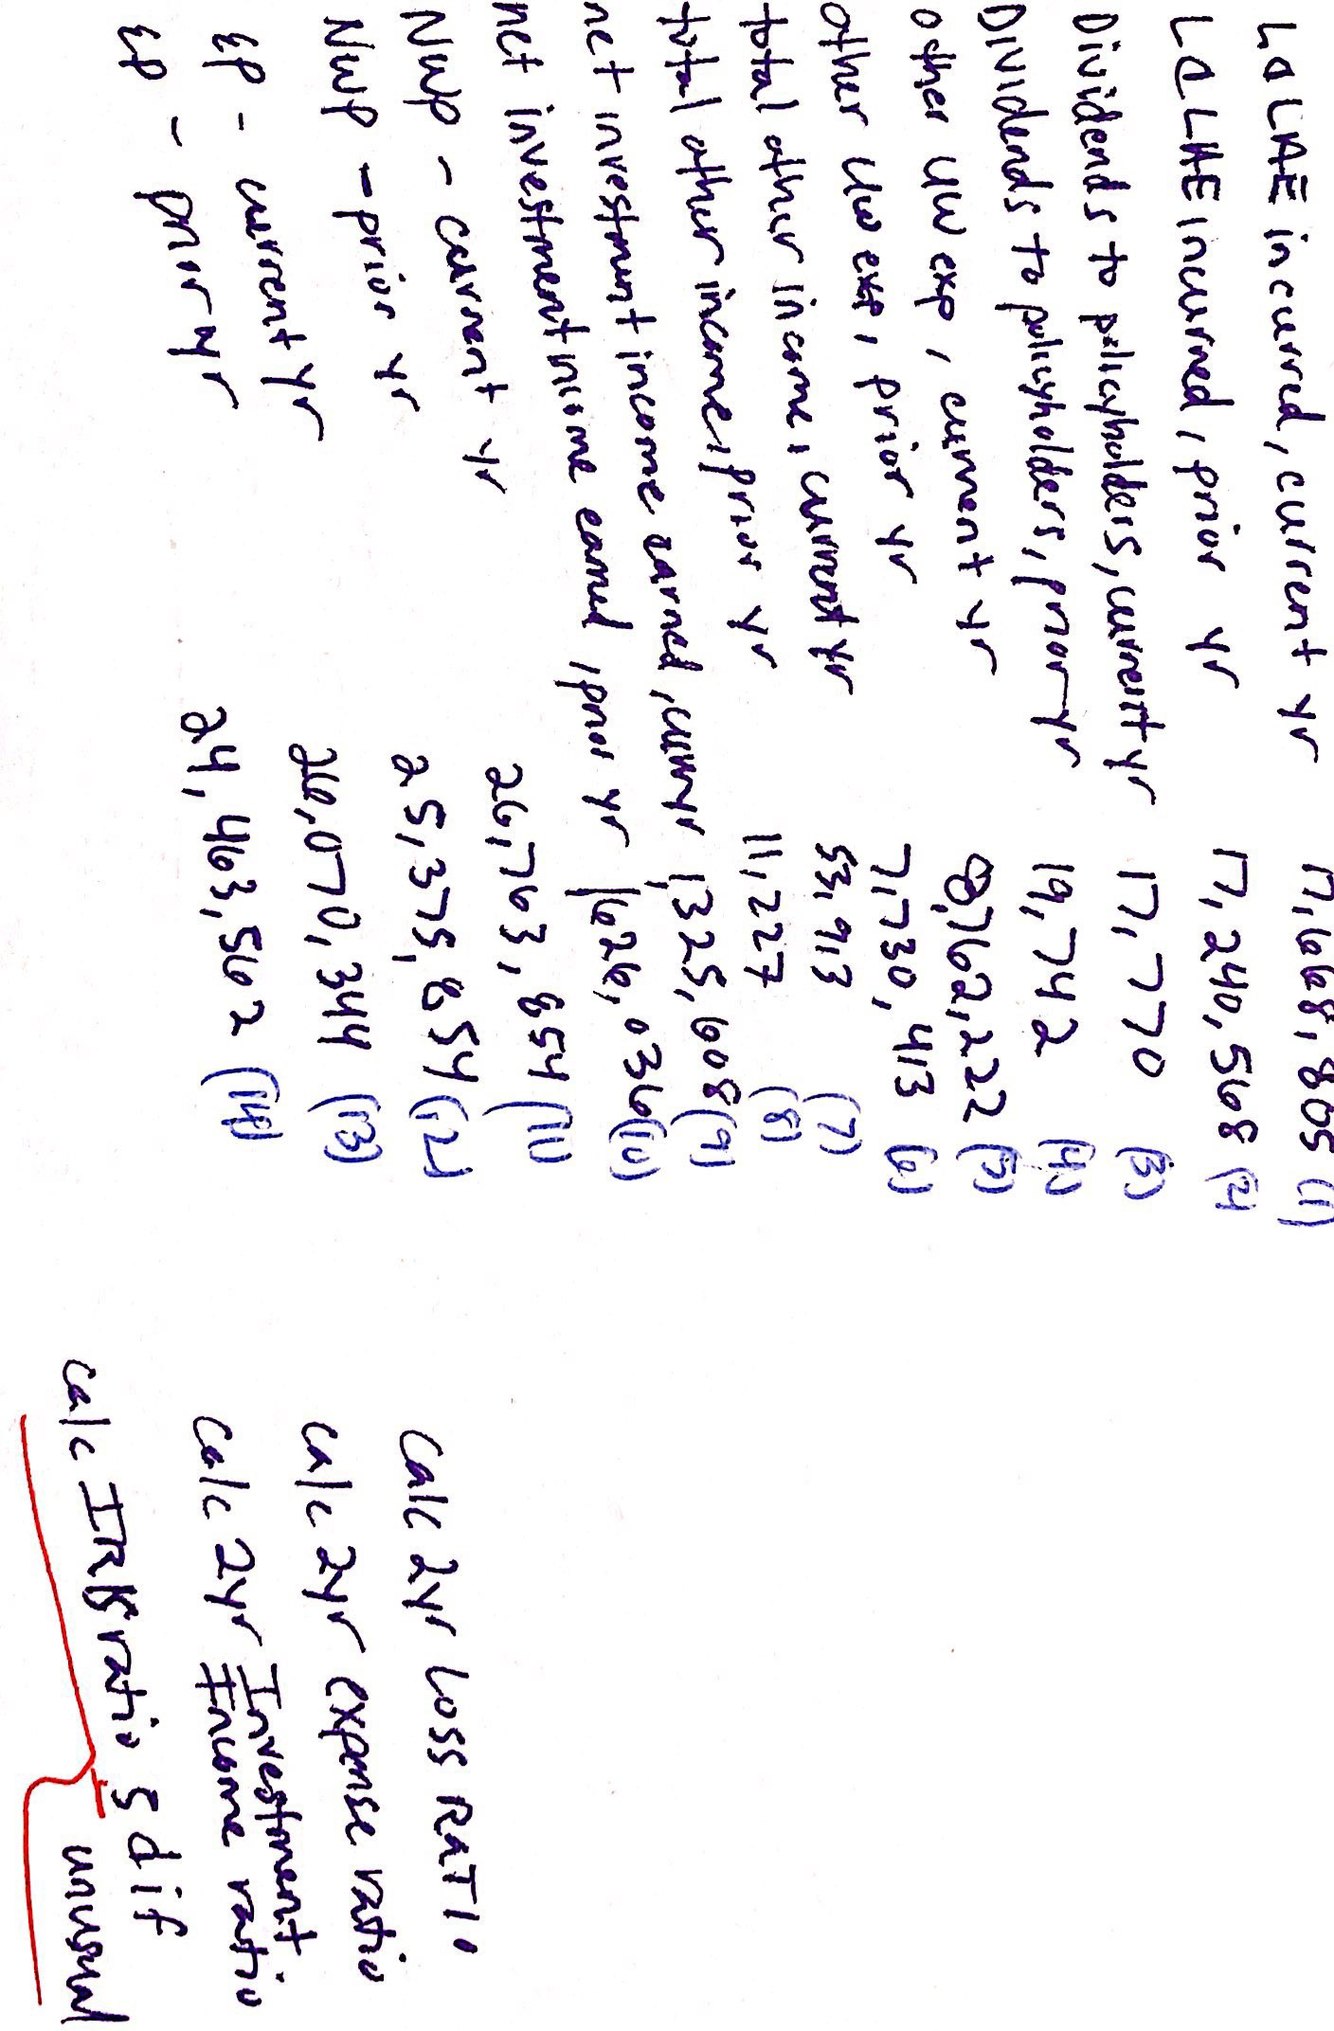 L & LAE incurred, current yr 17,668,805 (1)
L & LAE incurred, prior yr 17,240,568 (2)
Dividends to policyholders, current yr 17,770 (3)
Dividends to policyholders, prior yr 19,742 (4)
other UW exp, current yr 8,762,222 (5)
other UW exp, prior yr 7,730,413 (6)
total other income, current yr 53,913 (7)
total other income, prior yr 11,227 (8)
net investment income earned, curr yr 1,325,608 (9)
net investment income earned, prior yr 1,626,036 (10)
NWP - current yr 26,763,854 (11)
NWP - prior yr 25,375,854 (12)
EP - current yr 26,070,344 (13)
EP - prior yr 24,463,562 (14)
calc 2yr LOSS RATIO
calc 2yr expense ratio
calc 2yr Investment Income ratio
calc IRIS ratio 5 & if unusual